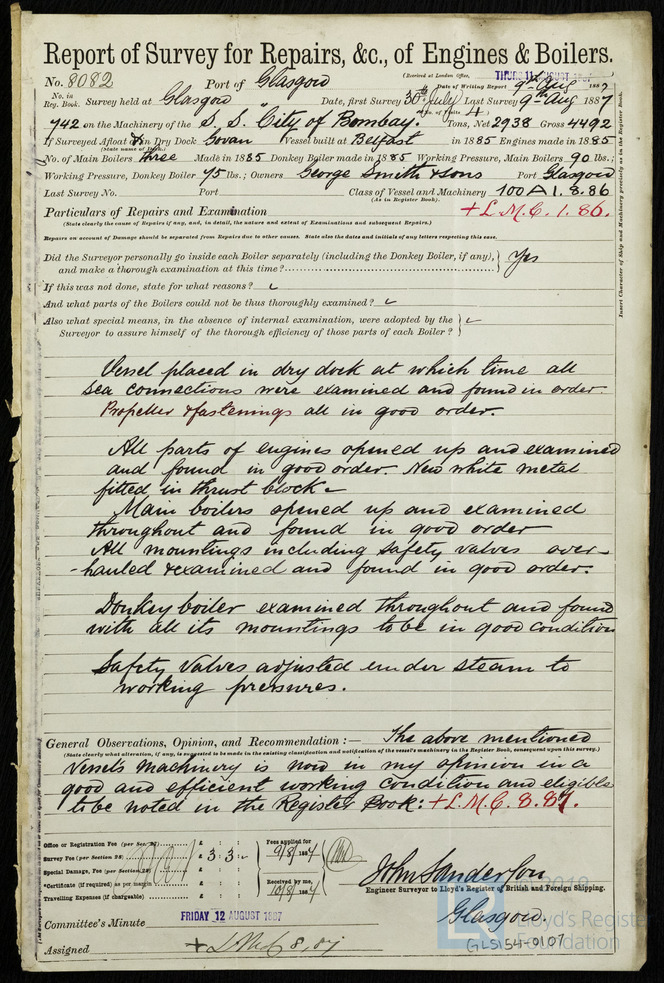 Report of Survey for Repairs, &c., of Engines & Boilers.
(Received at London Office, THURS 11 AUGUST 1887
No. 8082 Port of Glasgow Date of Writing Report 9th Aug 1887
No. in Reg. Book. Survey held at Glasgow Date, first Survey 30th July Last Survey 9th Aug 1887
(No. of Visits 4)
742 on the Machinery of the S.S. "City of Bombay." Tons, Net 2938 Gross 4492
If Surveyed Afloat or in Dry Dock Govan Vessel built at Belfast in 1885 Engines made in 1885
(State name of Dock.)
No. of Main Boilers three Made in 1885 Donkey Boiler made in 1885 Working Pressure, Main Boilers 90 lbs.;
Working Pressure, Donkey Boiler 45 lbs.; Owners George Smith & Sons Port Glasgow
Last Survey No. Port Class of Vessel and Machinery 100 A 1. 8.86
(As in Register Book).
Particulars of Repairs and Examination + L.M.C. 1.86.
(State clearly the cause of Repairs if any, and, in detail, the nature and extent of Examinations and subsequent Repairs.)
Repairs on account of Damage should be separated from Repairs due to other causes. State also the dates and initials of any letters respecting this case.
Did the Surveyor personally go inside each Boiler separately (including the Donkey Boiler, if any), and make a thorough examination at this time? Yes
If this was not done, state for what reasons?
And what parts of the Boilers could not be thus thoroughly examined?
Also what special means, in the absence of internal examination, were adopted by the
Surveyor to assure himself of the thorough efficiency of those parts of each Boiler?
Vessel placed in dry dock at which time all
sea connections were examined and found in order.
Propeller & fastenings all in good order.
All parts of engines opened up and examined
and found in good order. New white metal
fitted in thrust block
Main boilers opened up and examined
throughout and found in good order
All mountings including safety valves over-
hauled & examined and found in good order.
Donkey boiler examined throughout and found
with all its mountings to be in good condition
Safety valves adjusted under steam to
working pressures.
General Observations, Opinion, and Recommendation :— The above mentioned
(State clearly what alteration, if any, is suggested to be made in the existing classification and notification of the vessel's machinery in the Register Book, consequent upon this survey.)
Vessel's machinery is now in my opinion in a
good and efficient working condition and eligible
to be noted in the Register Book: + L.M.C. 8.87.
Office or Registration Fee (per Sec
Survey Fee (per Section 28) £ 3 : 3 : Fees applied for 9/8/1887
Special Damage, Fee (per Section 28)
*Certificate (if required) as per margin Received by me, 10/8/1887
Travelling Expenses (if chargeable)
John Sanderson
Engineer Surveyor to Lloyd's Register of British and Foreign Shipping.
Glasgow.
Committee's Minute FRIDAY 12 AUGUST 1887
Assigned + LMC 8,87
GLS154-0107
Insert Character of Ship and Machinery precisely as in the Register Book.
Lloyd's Register
Foundation